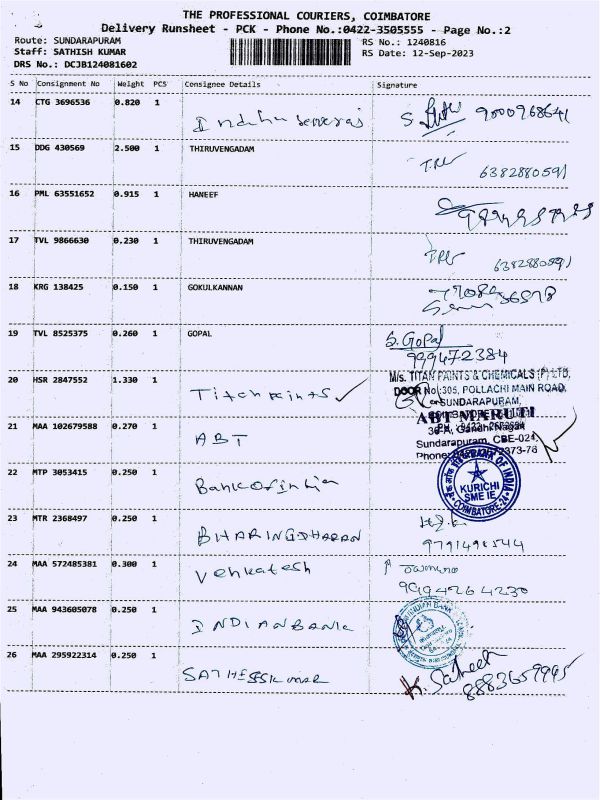 THE PROFESSIONAL COURIERS, COIMBATORE
Delivery Runsheet - PCK - Phone No.:0422-3505555 - Page No.:2
Route: SUNDARAPURAM
Staff: SATHISH KUMAR
DRS No.: DCJB124081602
RS No.: 1240816
RS Date: 12-Sep-2023
S No Consignment No Weight PCS Consignee Details Signature
14 CTG 3696536 0.820 1
15 DDG 430569 2.500 1 THIRUVENGADAM
6382880591
16 PML 63551652 0.915 1 HANEEF
17 TVL 9866630 0.230 1 THIRUVENGADAM
6382880591
18 KRG 138425 0.150 1 GOKULKANNAN
19 TVL 8525375 0.260 1 GOPAL S. Gopal
999472384
20 HSR 2847552 1.330 1 Titan paints
M/s. TITAN PAINTS & CHEMICALS (P) LTD,
DOOR No:305, POLLACHI MAIN ROAD,
SUNDARAPURAM,
21 MAA 102679588 0.270 1 ABT
ABT MARUTI
36-A, Gandhi Nagar
Sundarapuram, CBE-024,
22 MTP 3053415 0.250 1 Bank of india
BANK OF INDIA
KURICHI
SME IE
COIMBATORE-24
23 MTR 2368497 0.250 1 BHARINGDHARAN
24 MAA 572485381 0.300 1 Venkatesh
9994264230
25 MAA 943605078 0.250 1 INDIAN BANK
26 MAA 295922314 0.250 1 SATHEESKUMAR
K. Satheesh
8883659995